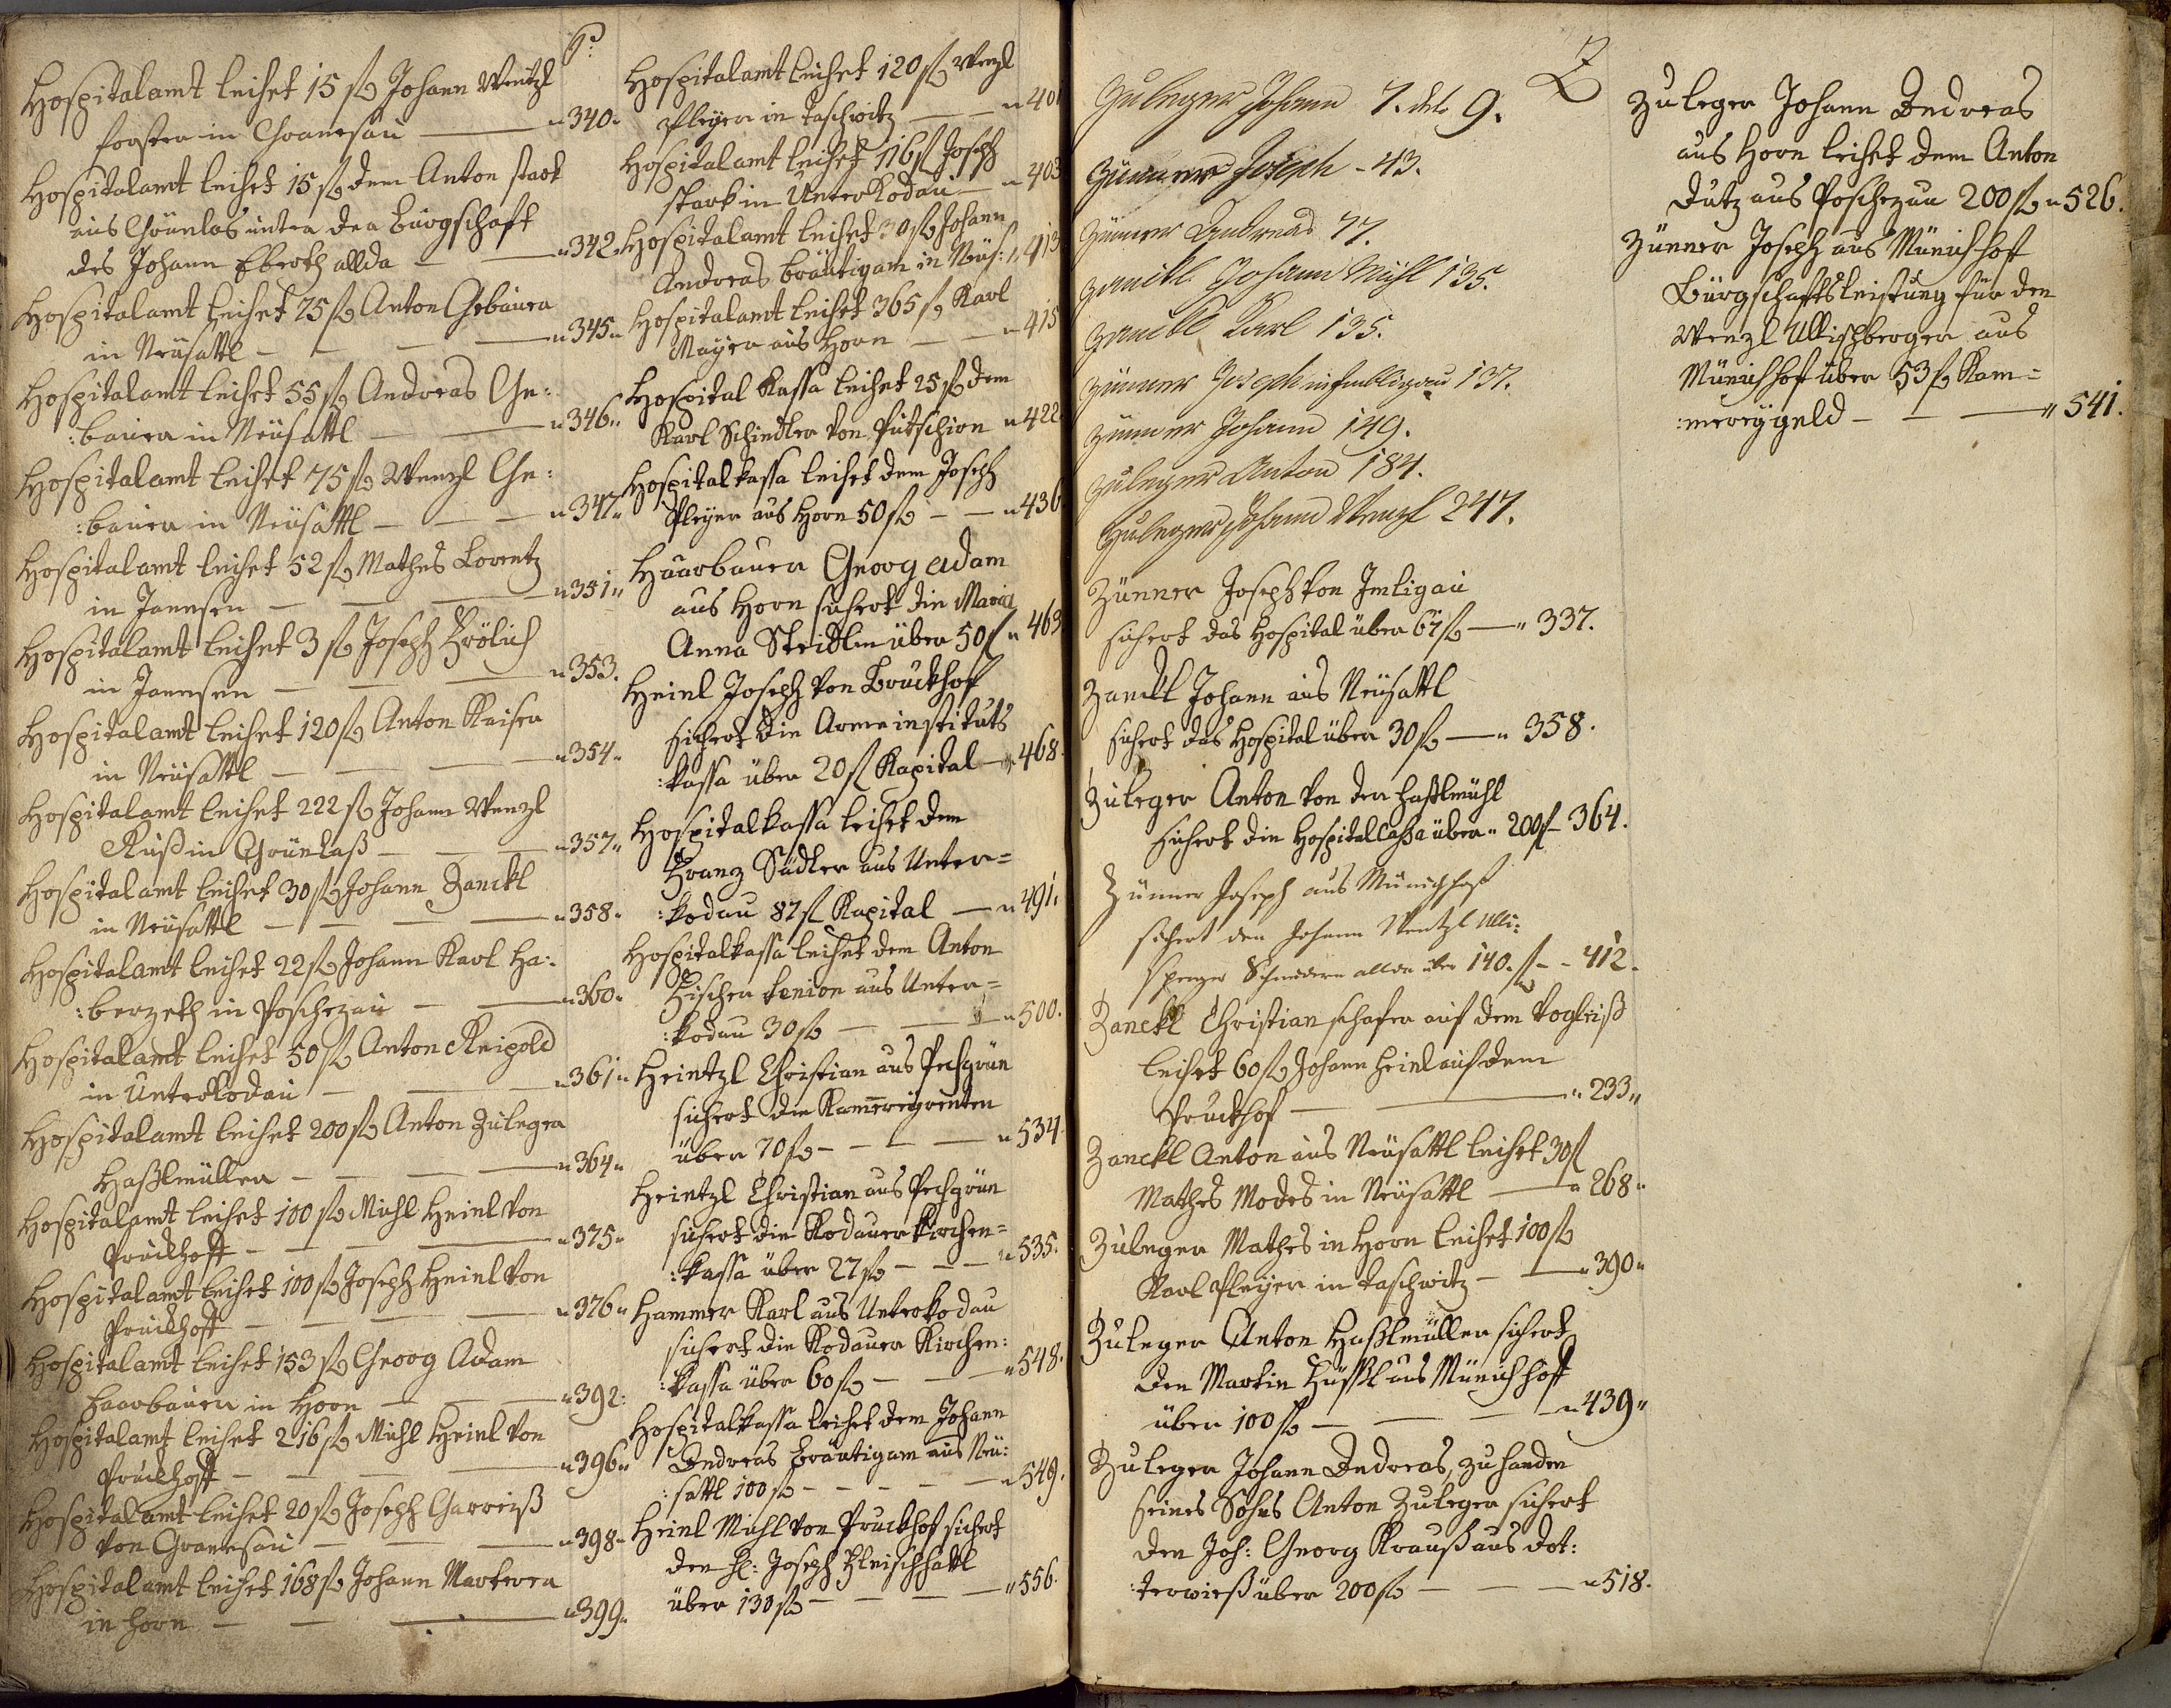 H:
Hospitalamt leihet 15 fl Johann Wentzl
forster in Granesau — "340"
Hospitalamt leihet 15 fl dem Anton stark
aus Grünlas unter der bürgschaft
des Johann Eberth allda — "342"
Hospitalamt leihet 25 fl Anton Gebauer
in Neüsattl — "345"
Hospitalamt leihet 55 fl Andreas Ge:
:bauer in Neüsattl — "346"
Hospitalamt leihet 75 fl Wenzl Ge:
:bauer in Neüsattl — "347"
Hospitalamt leihet 52 fl Mathes Lorentz
in Janesen — "351"
Hospitalamt leihet 3 fl Joseph Frölich
in Janesen — "353.
Hospitalamt leihet 120 fl Anton Kaiser
in Neüsattl — "354"
Hospitalamt leihet 222 fl Johann Wenzl
Ruß in Grünlaß — "357"
Hospitalamt leihet 30 fl Johann Zanckl
in Neüsattl — "358"
Hospitalamt leihet 22 fl Johann Karl Ha:
:berzeth in Poschezau — "360"
Hospitalamt leihet 50 fl Anton Reipold
in Unterkodau — "361"
Hospitalamt leihet 200 fl Anton Zuleger
Haßlmüller — "364"
Hospitalamt leihet 100 fl Michl Heinl von
Pruckhoff — "375"
Hospitalamt leihet 100 fl Joseph Heinl von
Pruckhoff — "376"
Hospitalamt leihet 153 fl Georg Adam
Haarbauer in Horn — "392:
Hospitalamt leihet 216 fl Michl Heinl von
Pruckhoff — "396"
Hospitalamt leihet 20 fl Joseph Garreiß
von Granesau — "398"
Hospitalamt leihet 168 fl Johann Marterer
in Horn — "399"
Hospitalamt leihet 120 fl Wenzl
Pleyer in Taschwitz — "401
Hospitalamt leihet 116 fl Joseph
stark in Unterkodau — "403
Hospitalamt leihet 30 fl Johann
Andreas bräutigam in Neüs: "413
Hospitalamt leihet 365 fl Karl
Mayer aus Horn — "415
Hospital Kassa leihet 25 fl dem
Karl Schindler von Putschirn "422
Hospitalkassa leihet dem Joseph
Pleyer aus Horn 50 fl — "436
Haarbauer Georg Adam
aus Horn sichert die Maria
Anna Steidlin über 50 fl "463
Heinl Joseph von Bruckhof
sichert die Armeinstituts
:kassa über 20 fl Kapital — "468.
Hospitalkassa leihet dem
Franz Sadler aus Unter=
:kodau 87 fl Kapital — "491.
Hospitalkassa leihet dem Anton
Fischer senior aus Unter=
:kodau 30 fl — "500.
Heintzl Christian aus Pechgrün
sichert die Kammereyrenten
über 70 fl — "534.
Heintzl Christian aus Pechgrün
sichert die Kodauer Kirchen=
:kassa über 27 fl — "535.
Hammer Karl aus Unterkodau
sichert die Kodauer Kirchen:
:kassa über 60 fl — "548.
Hospitalkassa leihet dem Johann
Andreas bräutigam aus Neü:
:sattl 100 fl — "549.
Heinl Michl von Pruckhof sichert
den H: Joseph Fleischhakl
über 130 fl — "556.
Z
Zuleger Johann 7. dto 9.
Zünner Joseph - 43.
Zünner Andreas 77.
Zanckl Johann Michl 135.
Zanckl Karl 135.
Zünner Joseph in Imlligau 137.
Zünner Johann 149.
Zuleger Anton 184.
Zuleger Johann Wenzl 247.
Zünner Joseph von Imligau
sichert das Hospital über 67 fl — "337.
Zanckl Johann aus Neüsattl
sichert das Hospital über 30 fl — "358.
Zuleger Anton von der Haßlmühl
sichert die Hospital Cassa über "200 fl — 364.
Zünner Joseph aus Münichhof
sichert den Johann Wentzl Ulli:
sperger Schneidern allda über 140. fl - - 412.
Zanckl Christian schafer auf dem Vogleiß
leihet 60 fl Johann Heinl auf dem
Pruckhof — "233"
Zanckl Anton aus Neüsattl leihet 30 fl
Mathes Modes in Neüsattl — "268"
Zuleger Mathes in Horn leihet 100 fl
Karl Pleyer in Taschwitz — "390"
Zuleger Anton Haßlmüller sichert
den Martin Füssl aus Münichhoff
über 100 fl — "439"
Zuleger Johann Andreas, zu handen
seines Sohns Anton Zuleger sichert
den Joh: Georg Krauß aus Dot:
:terwieß über 200 fl — "518.
Zuleger Johann Andreas
aus Horn leihet dem Anton
Dutz aus Poschezau 200 fl "526.
Zünner Joseph aus Münichhoff
Bürgschaftsleistung für den
Wenzl Ullischberger aus
Münichhof über 53 fl Kam=
:mereygeld — "541.